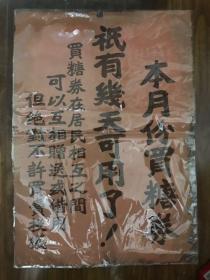 本月份買糖券
祇有幾天可用了！
買糖券在居民相互之間
可以互相贈送或借用
但絕對不許買賣投機